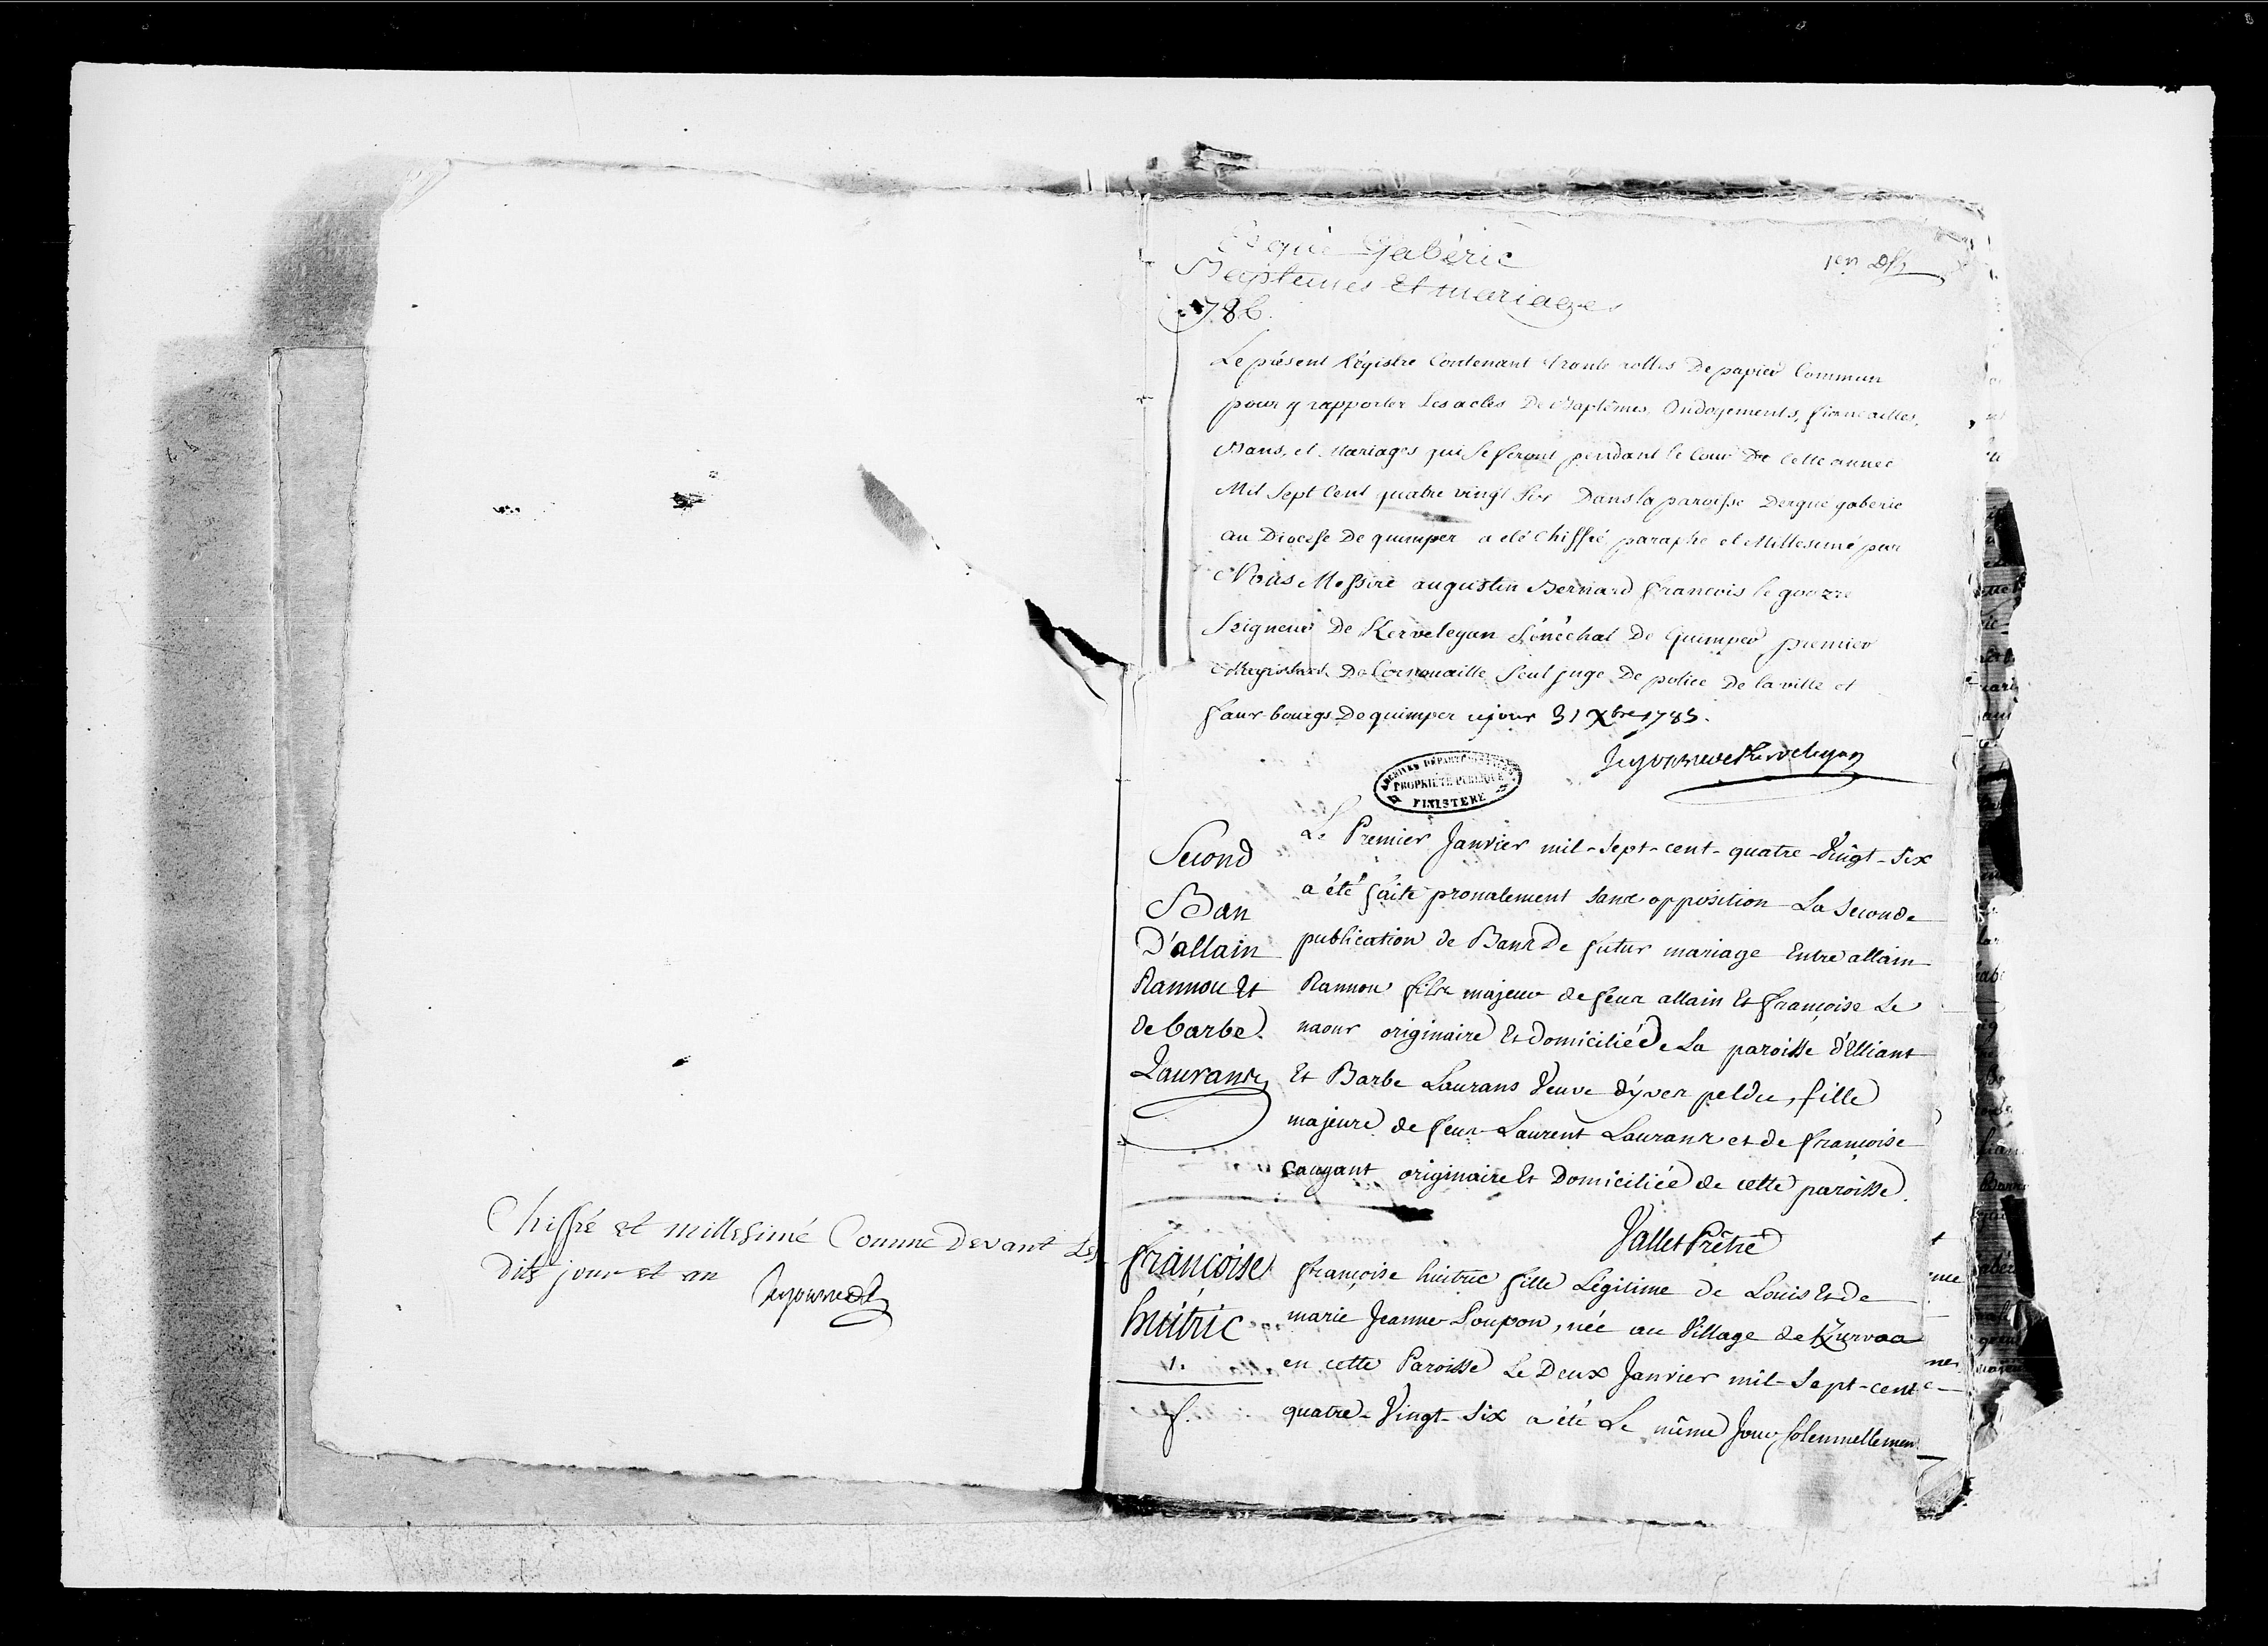 Chiffré et millesimé Comme devant Les
dits jour et an
Ergué Gabéric
Baptemes Et mariages
1786.
1er
Le présent Régistre Contenant trante rolles De papier Commun
pour y rapporter Les actes De Baptêmes, Ondoyements, fiancailles,
Bans, et Mariages qui se feront pendant le Cour De Cette année
Mil Sept Cent quatre vingt Six Dans la paroisse Dergué gaberic
au Diocese De quimper a été Chiffré, paraphé et Millesimé par
Nous Messire augustin Bernard francois le goazre
Seigneur De Kervelegan Sénéchal De Quimper, premier
Magistrat De Cornouaille Seul juge De police De la ville et
faux-bourgs De quimper ce jour 31 Xbre 1785.
ARCHIVES DÉPARTEMENTALES
PROPRIÉTÉ PUBLIQUE
FINISTERE
Second
Ban
D'allain
Rannou Et
de barbe
Laurans
Le Premier Janvier mil-Sept-cent-quatre-Vingt-Six
a été faite pronalement sans opposition La Seconde
publication de Bans De futur mariage Entre allain
Rannou fils majeur de feux allain Et françoise Le
naour originaire Et Domicilié De La paroisse d'Elliant
Et Barbe Laurans Veuve d'yves peldu, fille
majeure de feux Laurent Laurans et de françoise
originaire Et Domiciliée de cette paroisse.
Vallet Prêtre
françoise
huitric
1.
f.
françoise huitric fille Légitime de Louis Et de
marie Jeanne Loupon, née au Village de
en cette Paroisse Le Deux Janvier mil-Sept-cent
quatre-Vingt-Six a été Le même Jour Solemnellemen